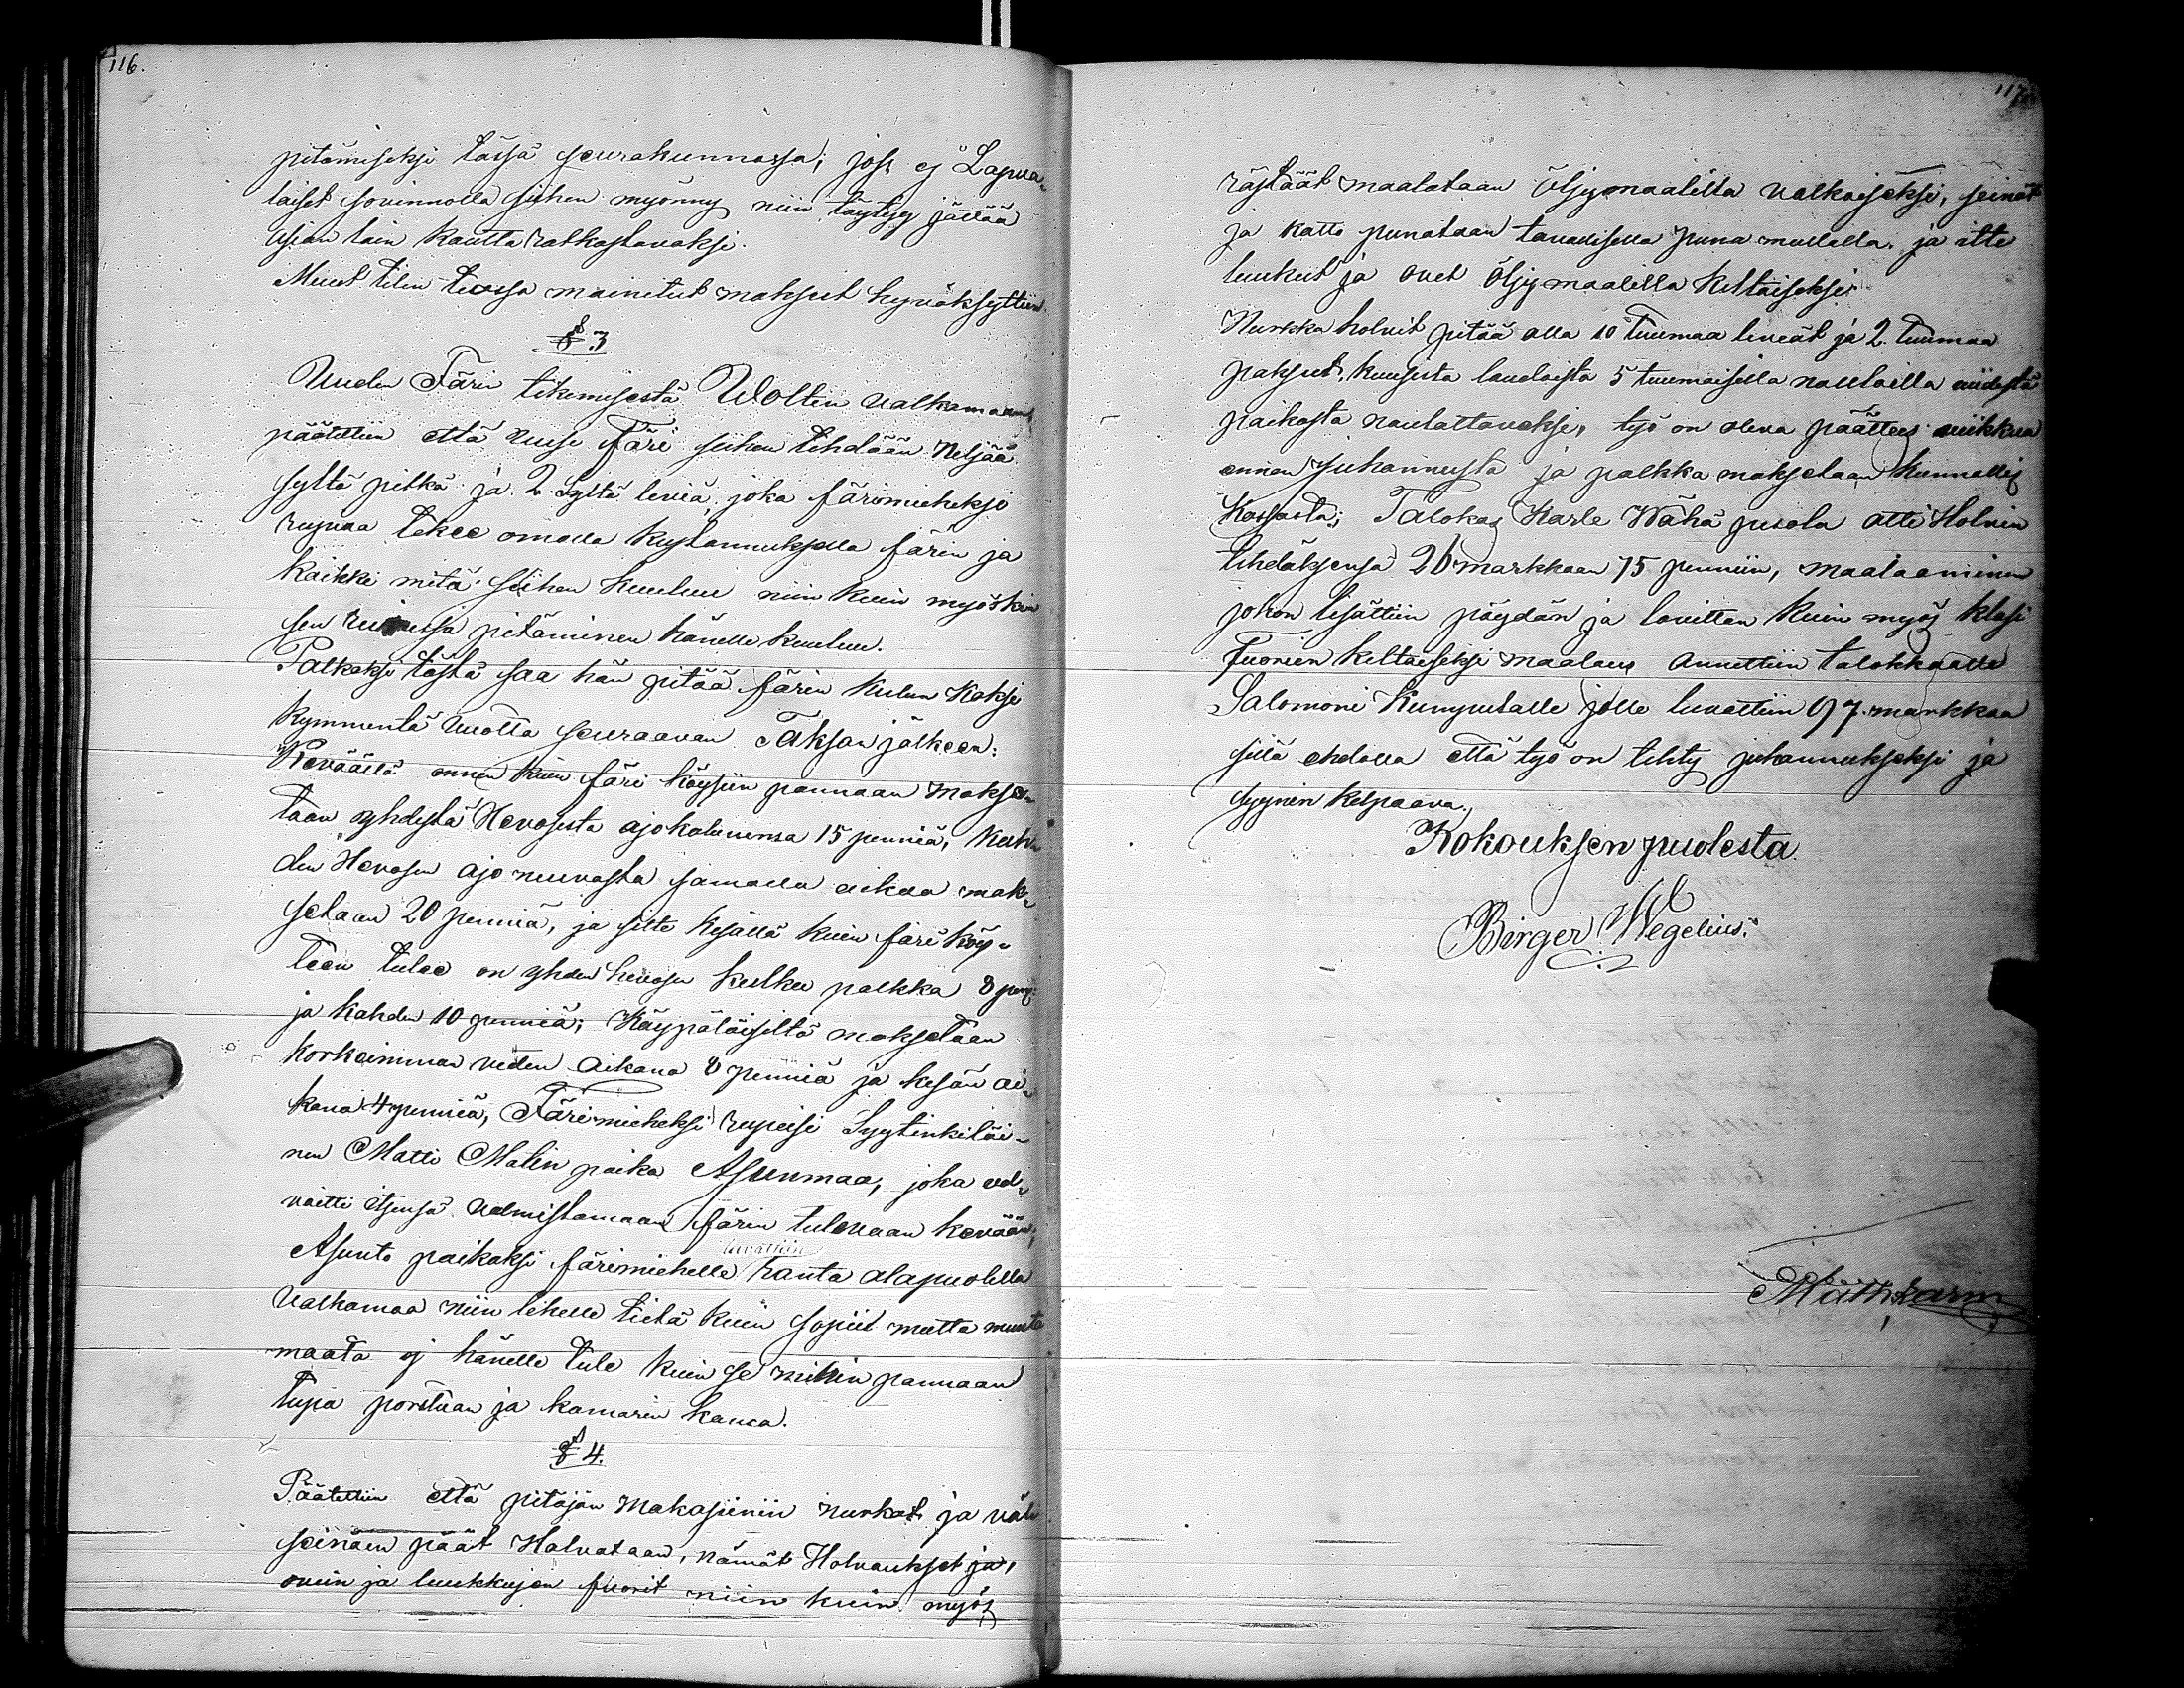 116.
pitämiseksi tässä seurakunnassa; jos ej Lapua-
laiset sovinnolla siihen myönny niin täytyy jättää
asian lain kautta ratkastavaksi.
Muut tilin teossa mainitut maksut hyväksyttiin.
§ 3
Uuden Färin tekemisestä Woltin valkamaan
päätettiin että uusi färi siihen tehdään Neljää
syltä pitkä ja 2 Syltä leviä, joka färimieheksi
rupiaa tekee omalla kustannuksella färin ja
kaikki mitä siihen kuuluu niin kuin myöskin
sen pitäminen hänelle kuuluu.
Palkaksi tästä saa hän pitää färin kulun kaksi
kymmentä vuotta seuraavan Taksan jälkeen:
Kevväällä ennen kuin färi köysiin pannaan makse-
taan yhdestä Hevosesta ajokaluinensa 15 penniä, kah-
den Hevosen ajo neuvosta samalla aikaa mak-
setaan 20 penniä, ja sitte kesällä kuin färi köy-
teen tulee on yhden hevosen kulku palkka 8 pen:
ja kahden 10 penniä; Käypäläisiltä maksetaan
korkeimman veden aikana 8 penniä ja kesän ai-
kana 4 penniä, Färimieheksi rupeisi Syytinkiläi-
nen Matti Matin poika Asunmaa, joka vel-
voitti itsensä valmistamaan färin tulevaan kevään;
luvattiin
Asunto paikaksi färimiehelle ranta alapuolella
Valkamaa niin likelle tietä kuin sopii mutta muuta
maata ej hänelle tule kuin se mihin pannaan
tupa porstuan ja kamarin kansa.
§ 4.
Päätettiin että pitäjän Makasiinin nurkat ja väli
seinäin päät Holvataan, nämät Holvaukset ja,
ovein ja luukkujen fuorit niin kuin myös
117
räjstäät maalataan Öljymaalilla valkoiseksi, seinät
ja katto punataan tavallisella puna mullalla, ja itte
luukut ja ovet Öljymaalilla keltaiseksi
Nurkka holvit pitää olla 10 tuumaa leveät ja 2 tuumaa
paksut, kuusista laudoista 5 tuumaisilla nauloilla viidestä
paikasta naulattavaksi, työ on oleva päättees viikkua
ennen juhannusta ja palkka maksetaan kunnallis
Kassasta; Talokas Karle Wähä pesola otti Holvin
tehdäksensä 26 markkaan 75 penniin, maalaaminen
johon lisättiin pöydän ja lavittan kuin myös klasi
Fuorien keltaiseksi maalaus annettiin talokkaalle
Salomoni Kumpulalle jolle luvattiin 97 markkaa
sillä ehdolla että työ on tehty juhannukseksi ja
syynin kelpaava.
Kokouksen puolesta
Birger Wegelius.